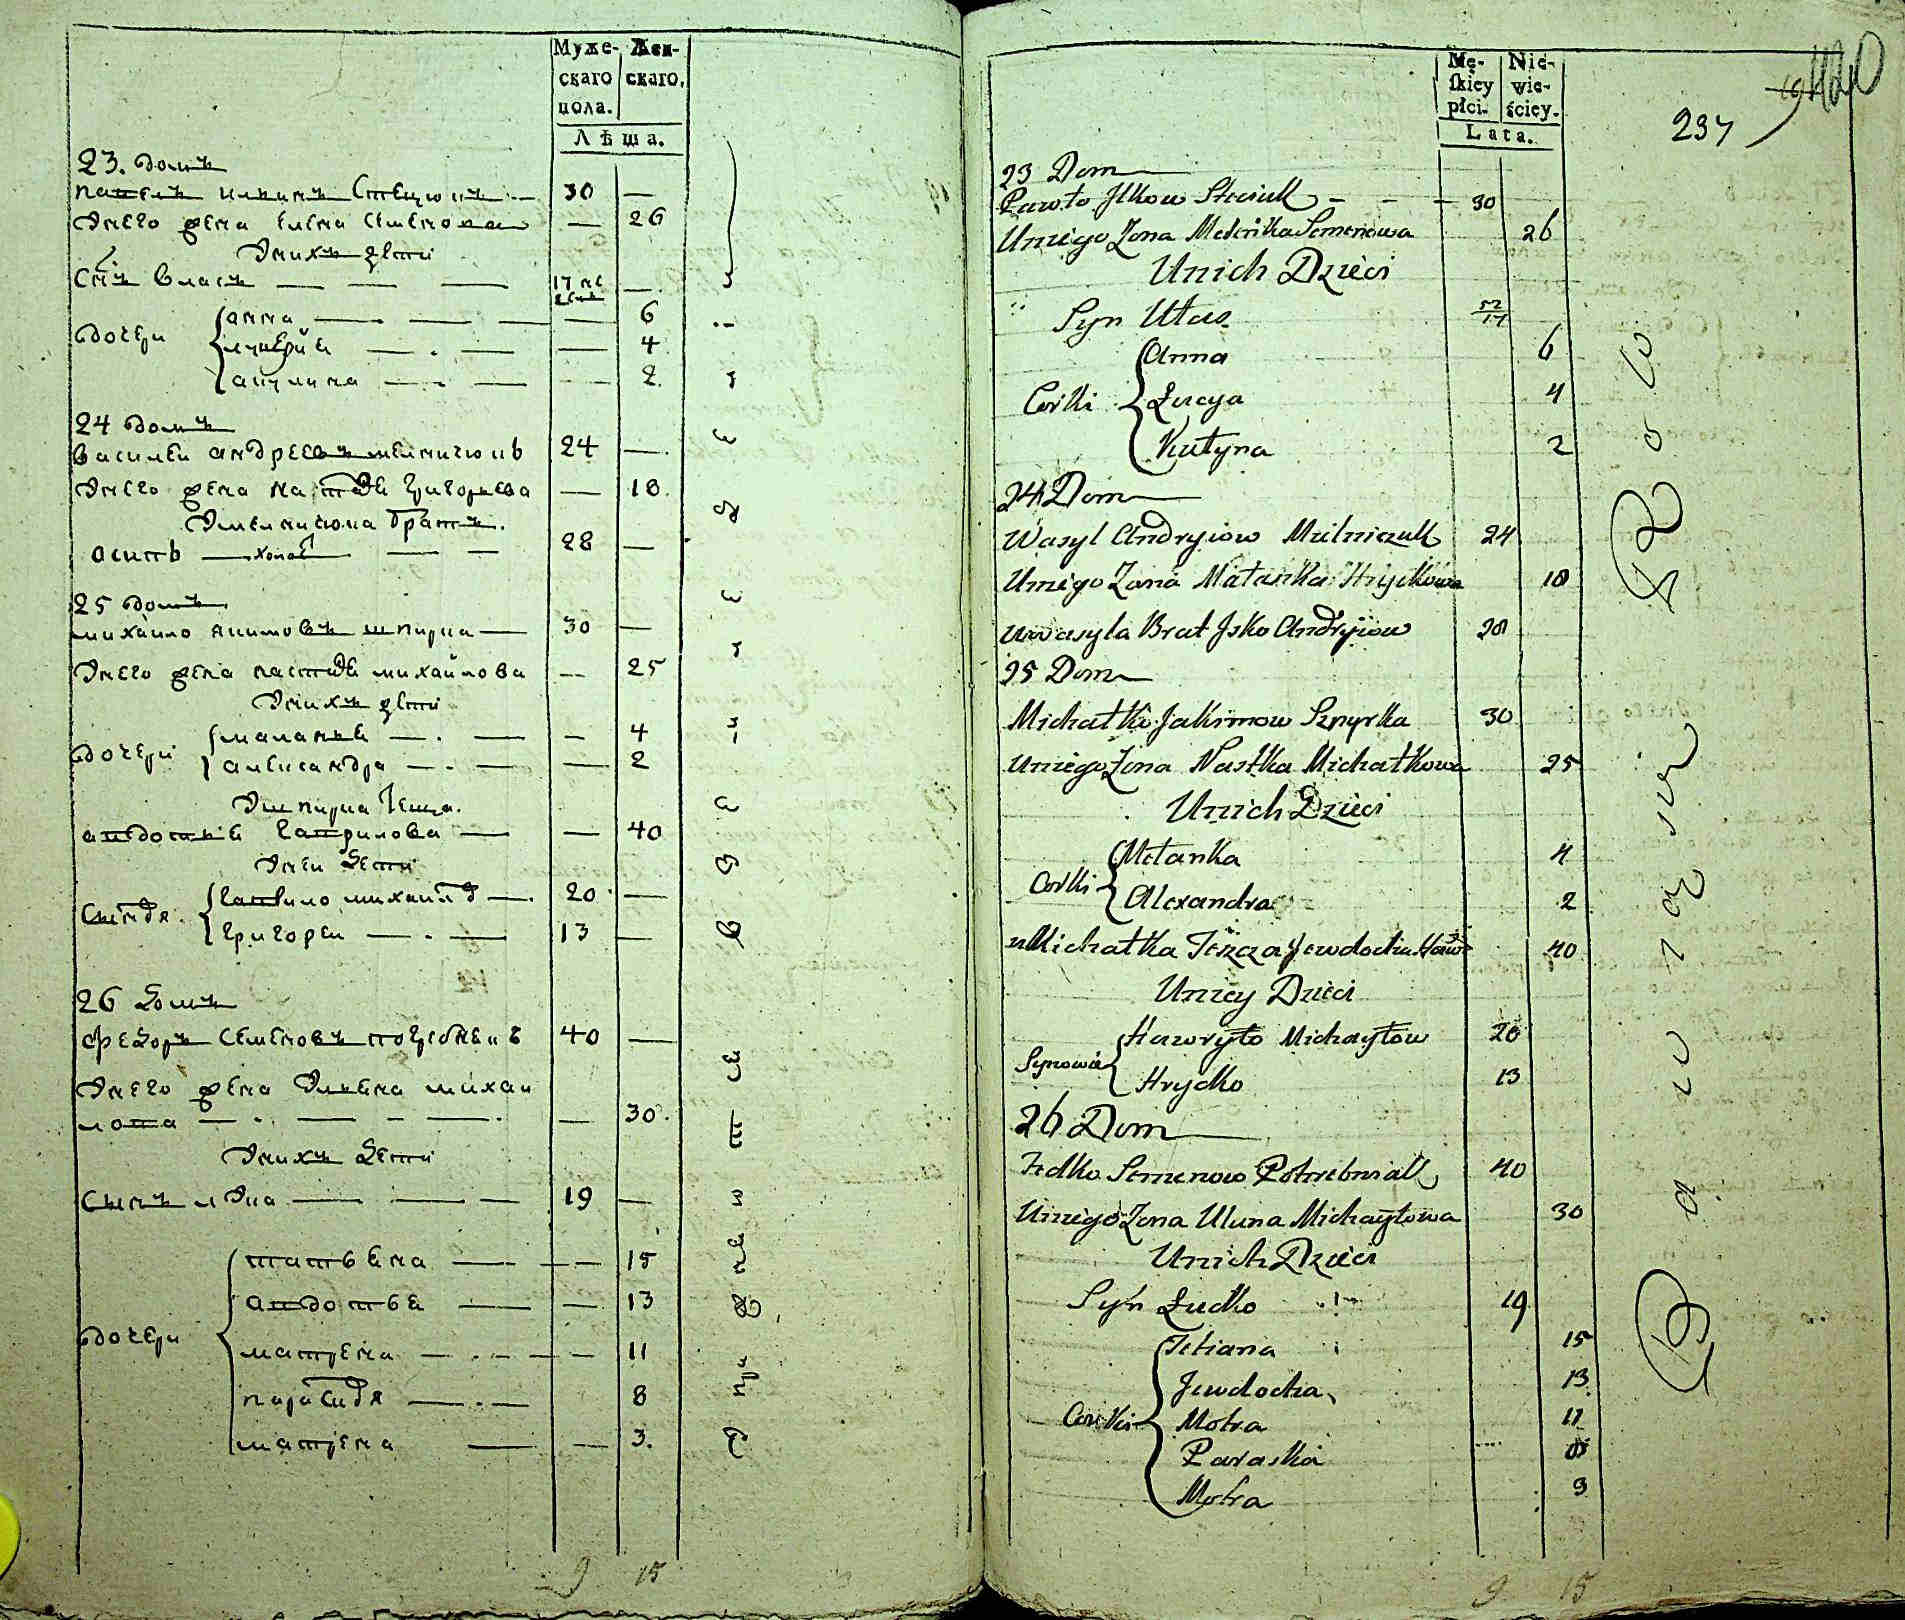 Муже-
скаго
пола.
Жен-
скаго.
Лѣта.
23. домъ
Павелъ Илкивъ Стецюкъ — 30 —
Унего жена Елена Семенова — 26
Унихъ дети
Снъ Власъ — — — 17 —
дочери
анна — — — 6
лукерия — — — 4
акулина — — — 2
24 домъ
Василеи андреевъ мелничюкъ 24 —
Унего жена настасия григорьева — 18
Умелничюка братъ
осипъ — 28 —
25 домъ
михайло якимовъ шпирка — 30 —
Унего жена настасия михайлова — 25
Унихъ дети
дочери
маланья — — — 4
александра — — — 2
Ушпирка теща
авдотья гаврилова — — 40
Унеи дети
Сыновя
гаврило михайловъ — 20 —
григореи — — 13 —
26 домъ
федоръ Семеновъ потребнякъ 40 —
Унего жена Ульяна михаи
лова — — — 30
Унихъ дети
Сынъ лука — — — 19 —
дочери
татьяна — — — 15
авдотья — — 13
матрена — — — 11
параскевя — — 8
матрена — — 3
9 15
Mę-
skiey
płci.
Nie-
wie-
ściey.
Lata.
237
420
23 Dom
Pawło Jlkow Steciuk - - - 30
Uniego Zona Meleńka Semenowa 26
Unich Dzieci
Syn Ułas
Corki
Anna 6
Łucya 4
Kułyna 2
24 Dom
Wasyl Andryiow Mielniczuk 24
Uniego Zona Nastaska Hryckowa 18
uwasyla Brat Jsko Andryiow 28
25 Dom
Michałko Jakimow Szpyrka 30
Uniego Zona Nastka Michałkowa 25
Unich Dzieci
Corki
Mełanka 4
Alexandra 2
u Michałka Teszcza Jewdocha Haw 40
Uniey Dzieci
Synowie
Hawryło Michayłow 20
Hrycko 13
26 Dom
Fedko Semenow Potrebniak 40
Uniego Zona Ulana Michayłowa 30
Unich Dzieci
Syn Łucko 19
Corki
Tetiana 15
Jewdocha 13
Motra 11
Paraska 8
Motra 3
9 15